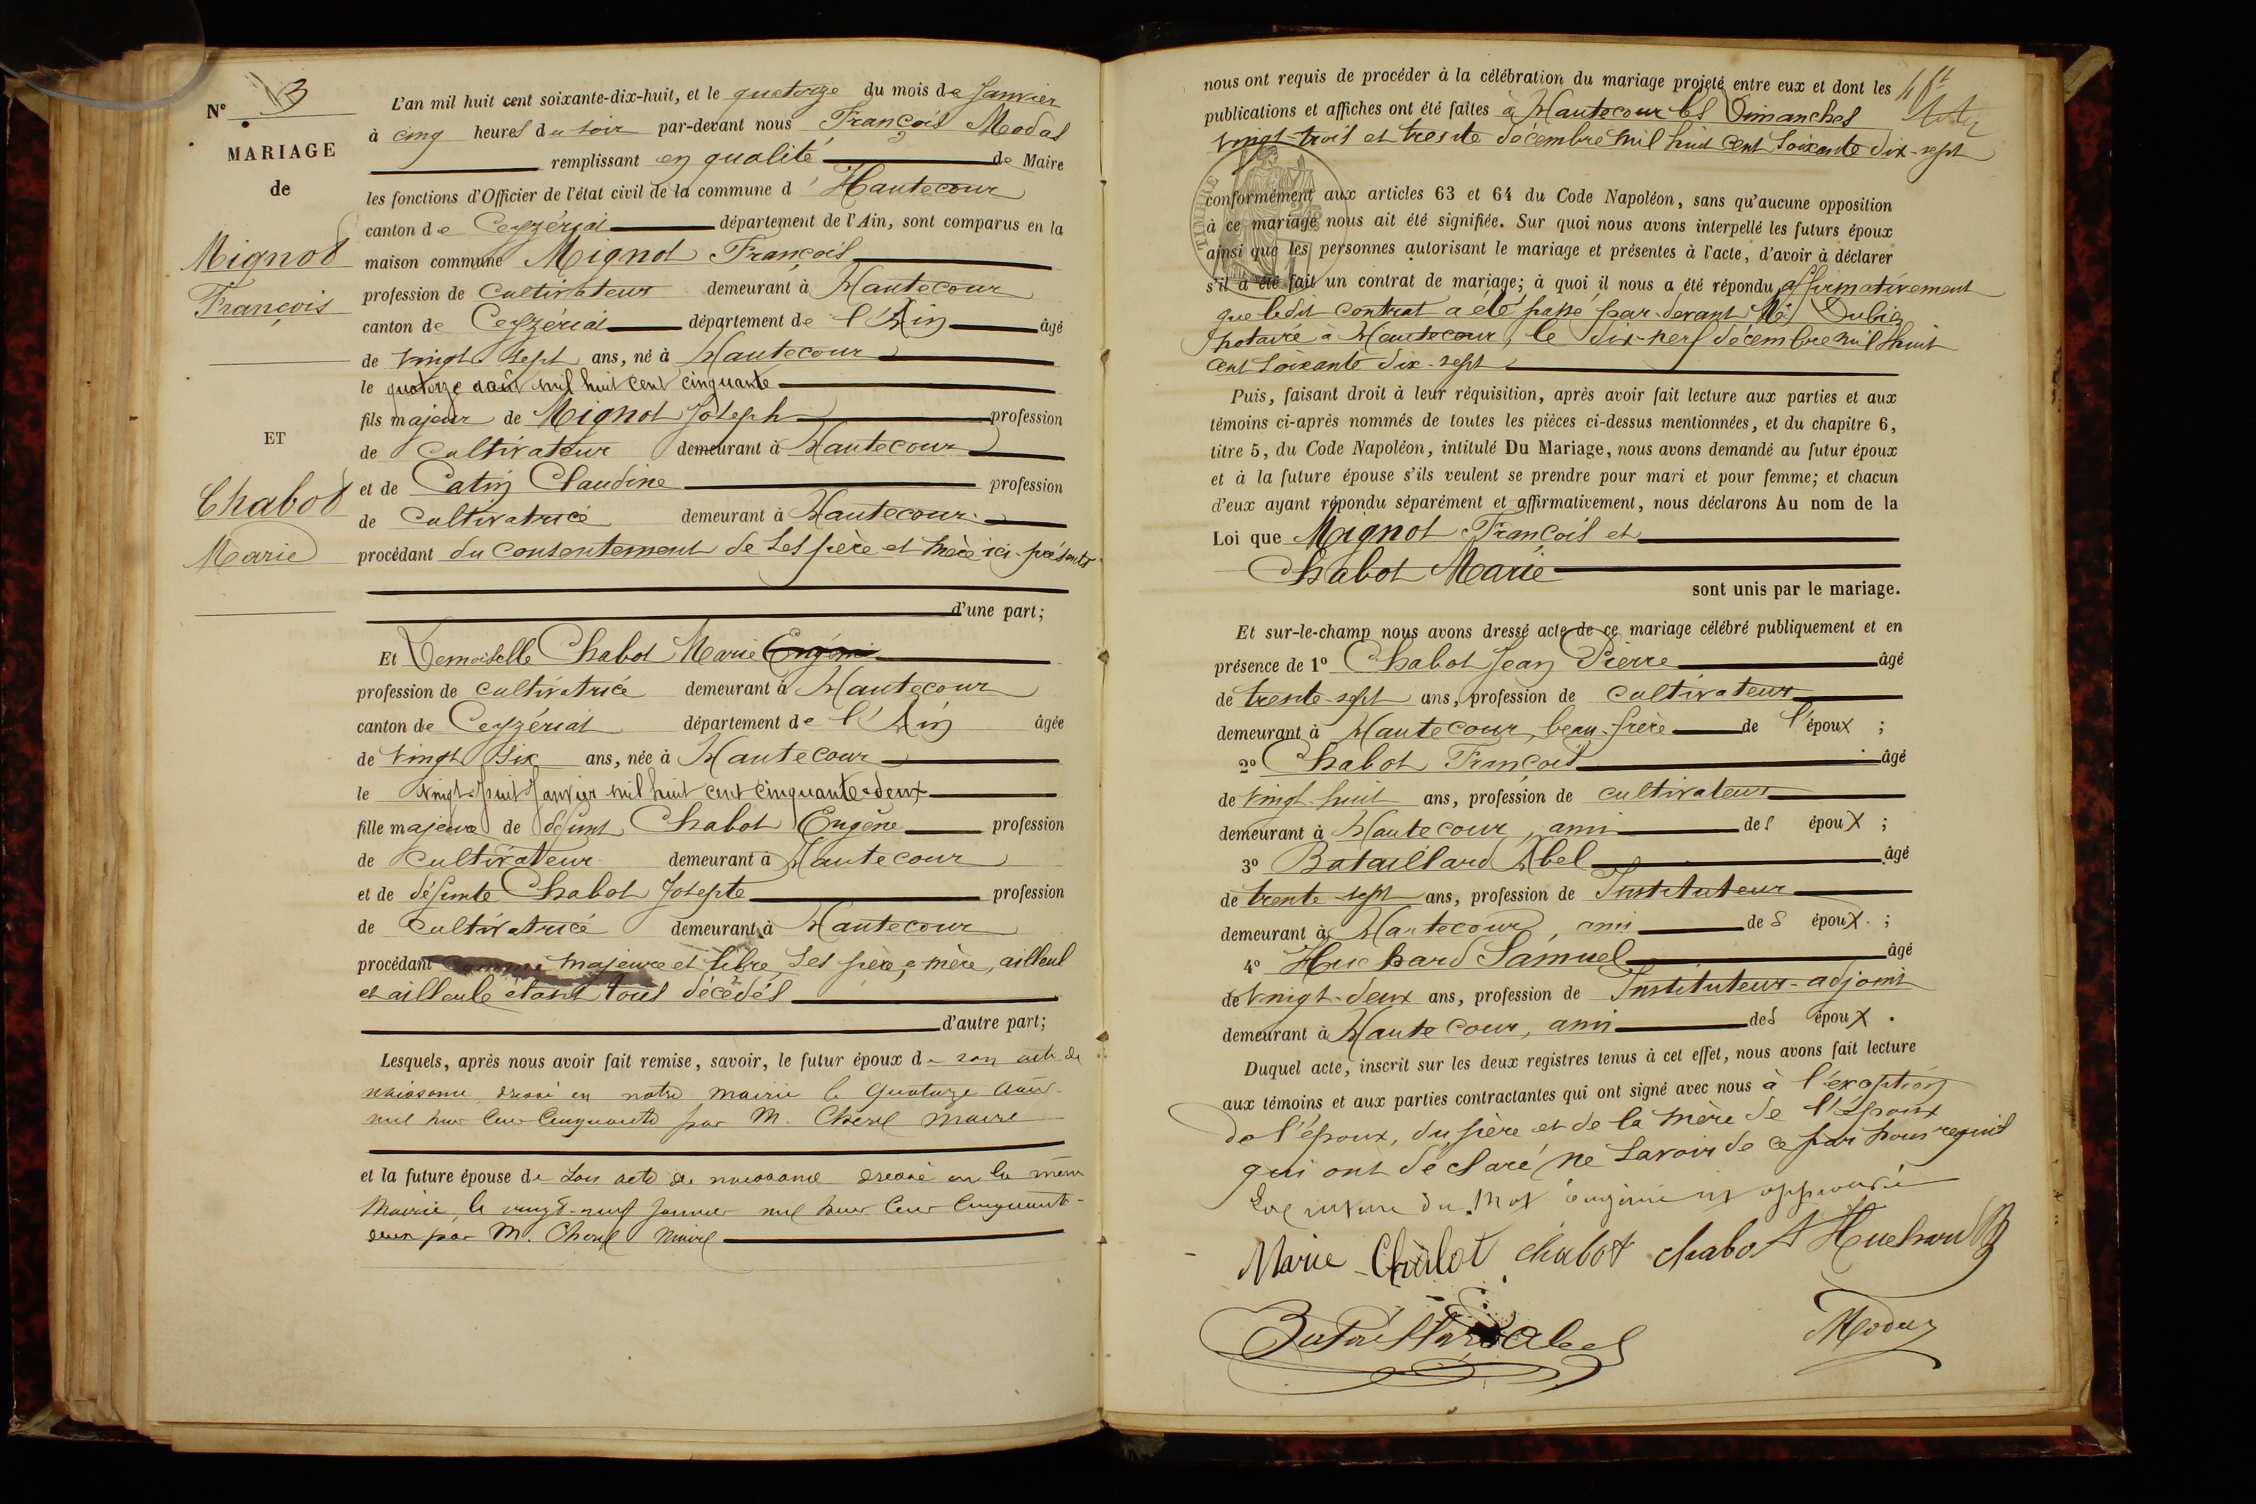 N° 3
MARIAGE
de
Mignot
François
ET
Chabot
Marie
L'an mil huit cent soixante-dix-huit, et le quatorze du mois de Janvier
à cinq heures du soir par-devant nous François Modas
remplissant en qualité de Maire
les fonctions d'Officier de l'état civil de la commune d' Hautecour
canton de Ceyzériat département de l'Ain, sont comparus en la
maison commune Mignot François
profession de cultivateur demeurant à Hautecour
canton de Ceyzériat département de l'Ain âgé
de vingt sept ans, né à Hautecour
le quatorze août mil huit cent cinquante
fils majeur de Mignot Joseph profession
de cultivateur demeurant à Hautecour
et de Catin Claudine profession
de Cultivatrice demeurant à Hautecour
procédant du consentement de ses père et mère ici présents
d'une part;
Et Demoiselle Chabot Marie Eugénie
profession de cultivatrice demeurant à Hautecour
canton de Ceyzériat département de l'Ain âgée
de vingt six ans, née à Hautecour
le vingt-huit Janvier mil huit cent cinquante-deux
fille majeure de défunt Chabot Eugène profession
de cultivateur demeurant à Hautecour
et de défunte Chabot Josepte profession
de cultivatrice demeurant à Hautecour
procédant majeure et libre, ses père, mère, ailleul
et ailleule étant tous décédés
d'autre part;
Lesquels, après nous avoir fait remise, savoir, le futur époux de son acte de
naissance dressé en notre mairie le quatorze août
mil huit cent cinquante par M. Chevel maire
et la future épouse de son acte de naissance dressé en la même
Mairie le vingt-neuf janvier mil huit cent cinquante-
deux par M. Chevel Maire
nous ont requis de procéder à la célébration du mariage projeté entre eux et dont les
publications et affiches ont été faites à Hautecour les Dimanches
vingt-trois et trente décembre mil huit cent soixante dix-sept
TIMBRE
conformément aux articles 63 et 64 du Code Napoléon, sans qu'aucune opposition
à ce mariage nous ait été signifiée. Sur quoi nous avons interpellé les futurs époux
ainsi que les personnes autorisant le mariage et présentes à l'acte, d'avoir à déclarer
s'il a été fait un contrat de mariage; à quoi il nous a été répondu affirmativement
que ledit contrat a été passé par-devant Me Dubin
notaire à Hautecour, le dix-neuf décembre mil huit
cent soixante dix-sept
Puis, faisant droit à leur réquisition, après avoir fait lecture aux parties et aux
témoins ci-après nommés de toutes les pièces ci-dessus mentionnées, et du chapitre 6,
titre 5, du Code Napoléon, intitulé Du Mariage, nous avons demandé au futur époux
et à la future épouse s'ils veulent se prendre pour mari et pour femme; et chacun
d'eux ayant répondu séparément et affirmativement, nous déclarons Au nom de la
Loi que Mignot François et
Chabot Marie
sont unis par le mariage.
Et sur-le-champ nous avons dressé acte de ce mariage célébré publiquement et en
présence de 1° Chabot Jean Pierre âgé
de trente-sept ans, profession de cultivateur
demeurant à Hautecour, beau-frère de l'époux ;
2° Chabot François âgé
de vingt-huit ans, profession de cultivateur
demeurant à Hautecour, ami des époux ;
3° Bataillard Abel âgé
de trente-sept ans, profession de Instituteur
demeurant à Hautecour, ami des époux. ;
4° Huchard Samuel âgé
de vingt-deux ans, profession de Instituteur-adjoint
demeurant à Hautecour, ami des époux.
Duquel acte, inscrit sur les deux registres tenus à cet effet, nous avons fait lecture
aux témoins et aux parties contractantes qui ont signé avec nous à l'exception
de l'époux, du père et de la mère de l'époux
qui ont déclaré ne savoir de ce par nous requis
du mot eugénie est approuvée
Marie Chabot chabot chabot Huchard
Bataillard Abel